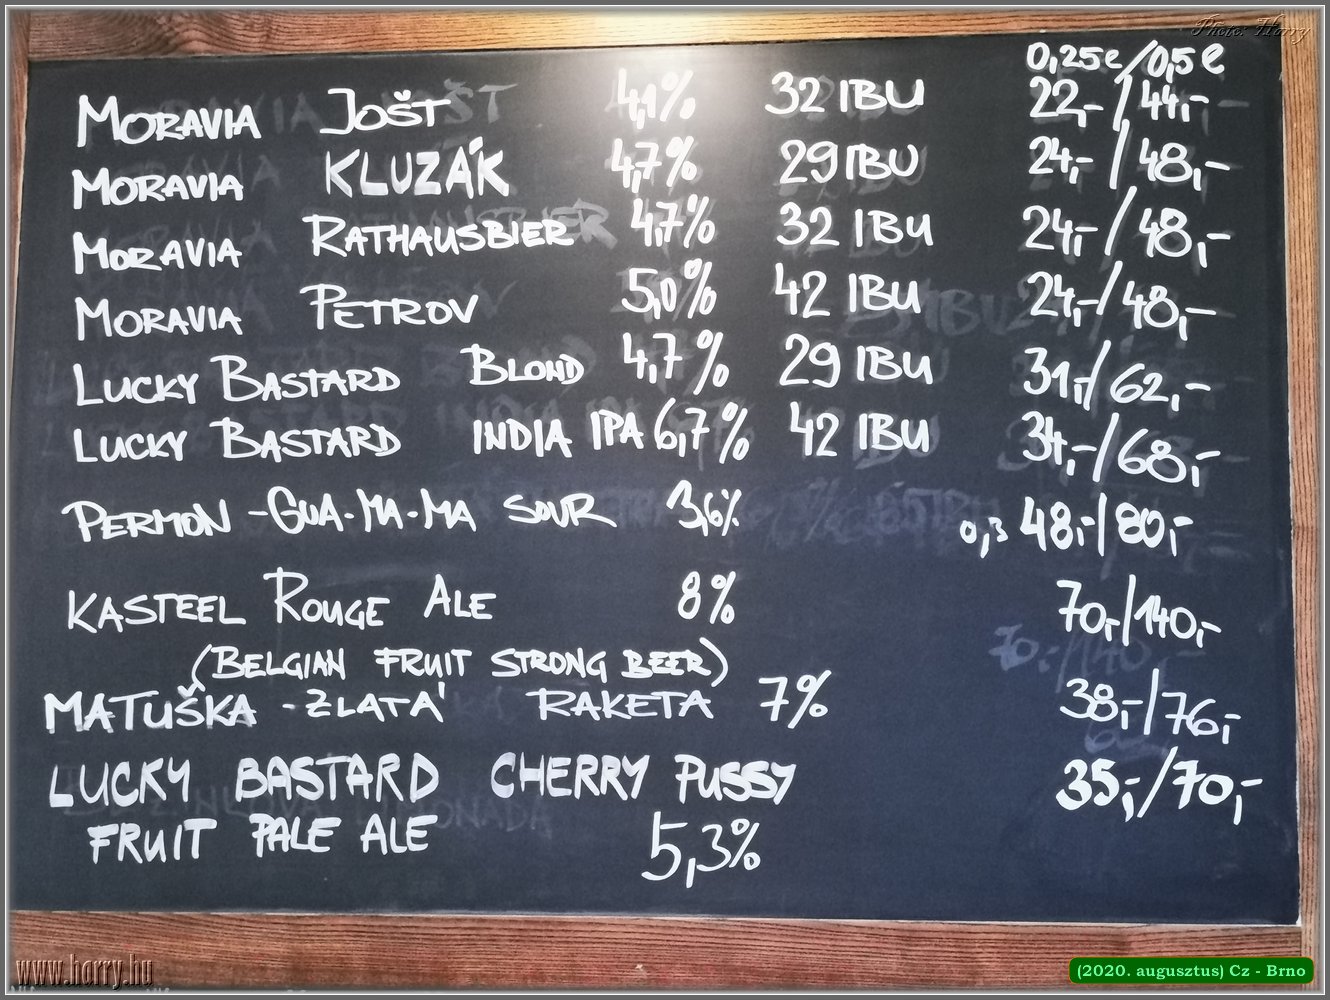 Photo: Horry
0,25l/0,5l
MORAVIA JOŠT 4,1% 32 IBU 22,-/44,-
MORAVIA KLUZÁK 4,7% 29 IBU 24,-/48,-
MORAVIA RATHAUSBIER 4,7% 32 IBU 24,-/48,-
MORAVIA PETROV 5,0% 42 IBU 24,-/48,-
LUCKY BASTARD BLOND 4,7% 29 IBU 31,-/62,-
LUCKY BASTARD INDIA IPA 6,7% 42 IBU 34,-/68,-
PERMON -GUA-MA-MA SOUR 3,6% 0,3 48,-/80,-
KASTEEL ROUGE ALE 8% 70,-/140,-
(BELGIAN FRUIT STRONG BEER)
MATUŠKA -ZLATÁ RAKETA 7% 38,-/76,-
LUCKY BASTARD CHERRY PUSSY 35,-/70,-
FRUIT PALE ALE 5,3%
www.horry.hu
(2020. augusztus) Cz - Brno